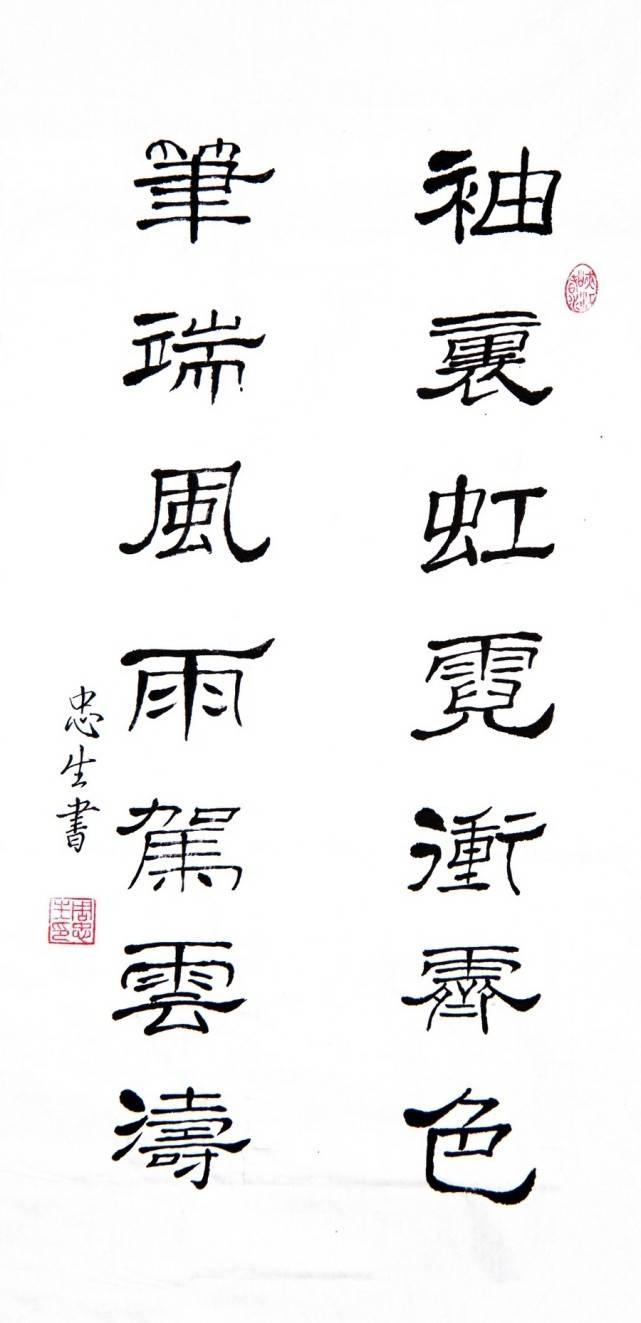 袖裏虹霓衝霽色
筆端風雨駕雲濤
忠生書
周忠生印